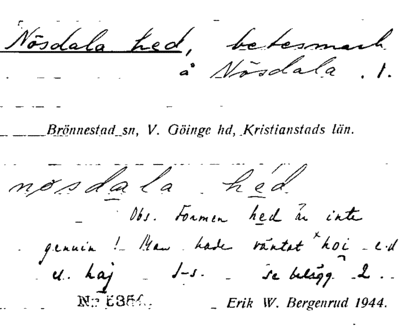 Nösdala hed, betesmark
å Nösdala 1.
Brönnestad sn, V. Göinge hd, Kristianstads län.
nösdala hed
Obs. Formen hed är inte
genuin! Man hade väntat *hoi e.d
el. haj 1-s. se belägg 2.
Erik W. Bergenrud 1944.